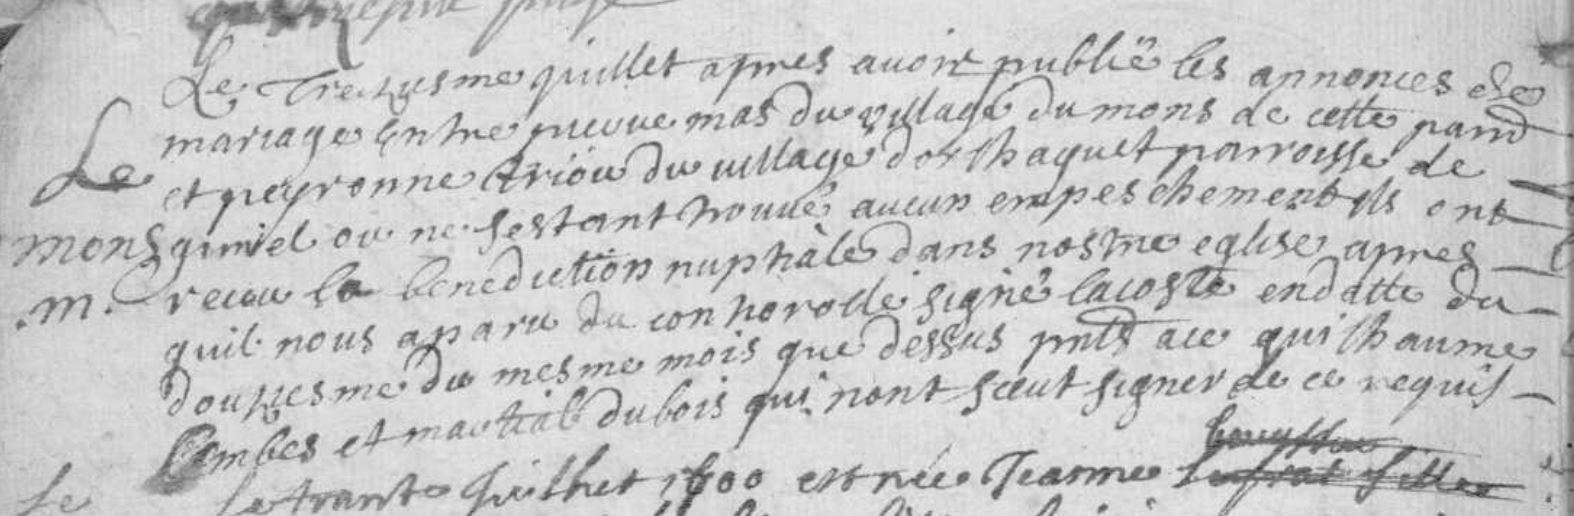 Le Trezusme juillet apres avoir publié les annonces de
mariage Entre pierre mas du village du mons de cette parr
Le
et peyronne Eriou du village dorlhaguet parroisse de
mons
gimel ou ne sestant trouvé aucun empeschement ils ont
.m.
receu la benediction nuptiale dans nostre eglise apres
quil nous a paru du controlle signé lacoste en datte du
douziesme du mesme mois que dessus pnts a ce guilhaume
Combes et martial dubois qui nont sceut signer de ce requis
Le
Le trante Juilhet 1600 est née Jeanne